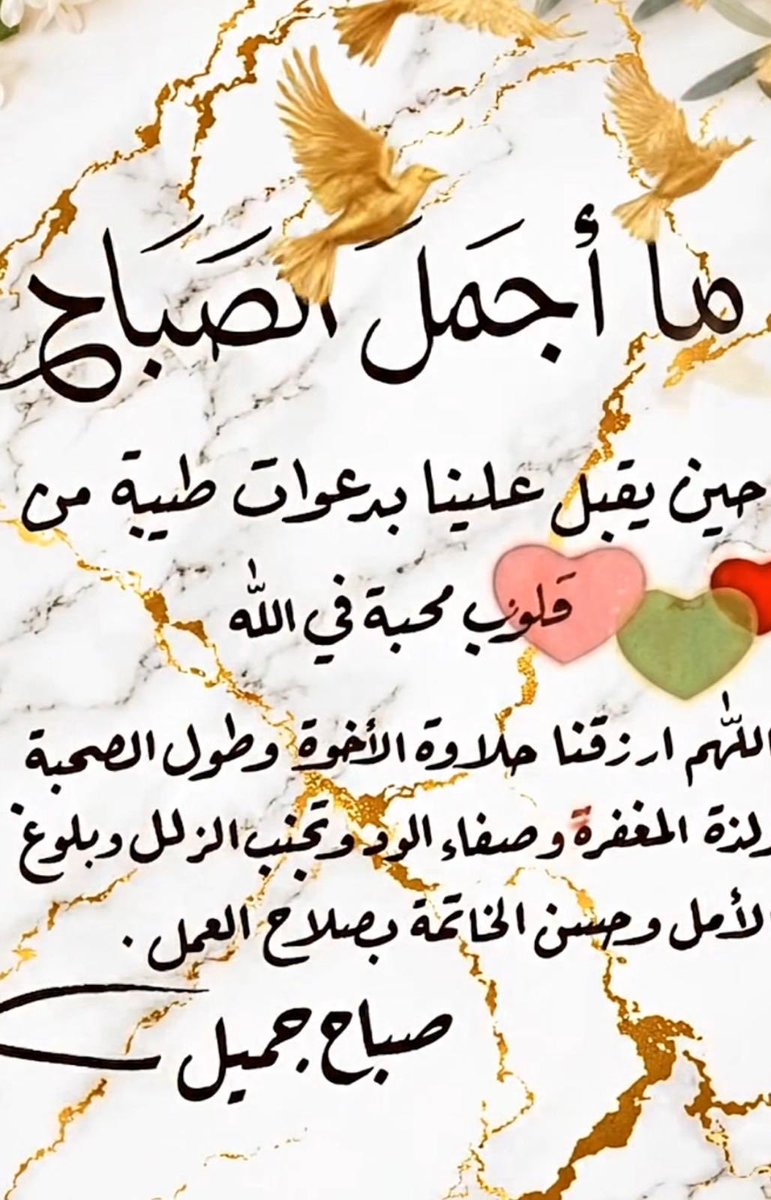 ما أجمَلَ الصَبَاح
حين يقبل علينا بدعوات طيبة من
قَلوب محبة في الله
اللهم ارزقنا حلاوة الأخوة وطول الصحبة
ولذة المغفرة وصفاء الود وتجنب الزلل وبلوغ
الأمل وحسن الخاتمة بصلاح العمل .
صباح جميل